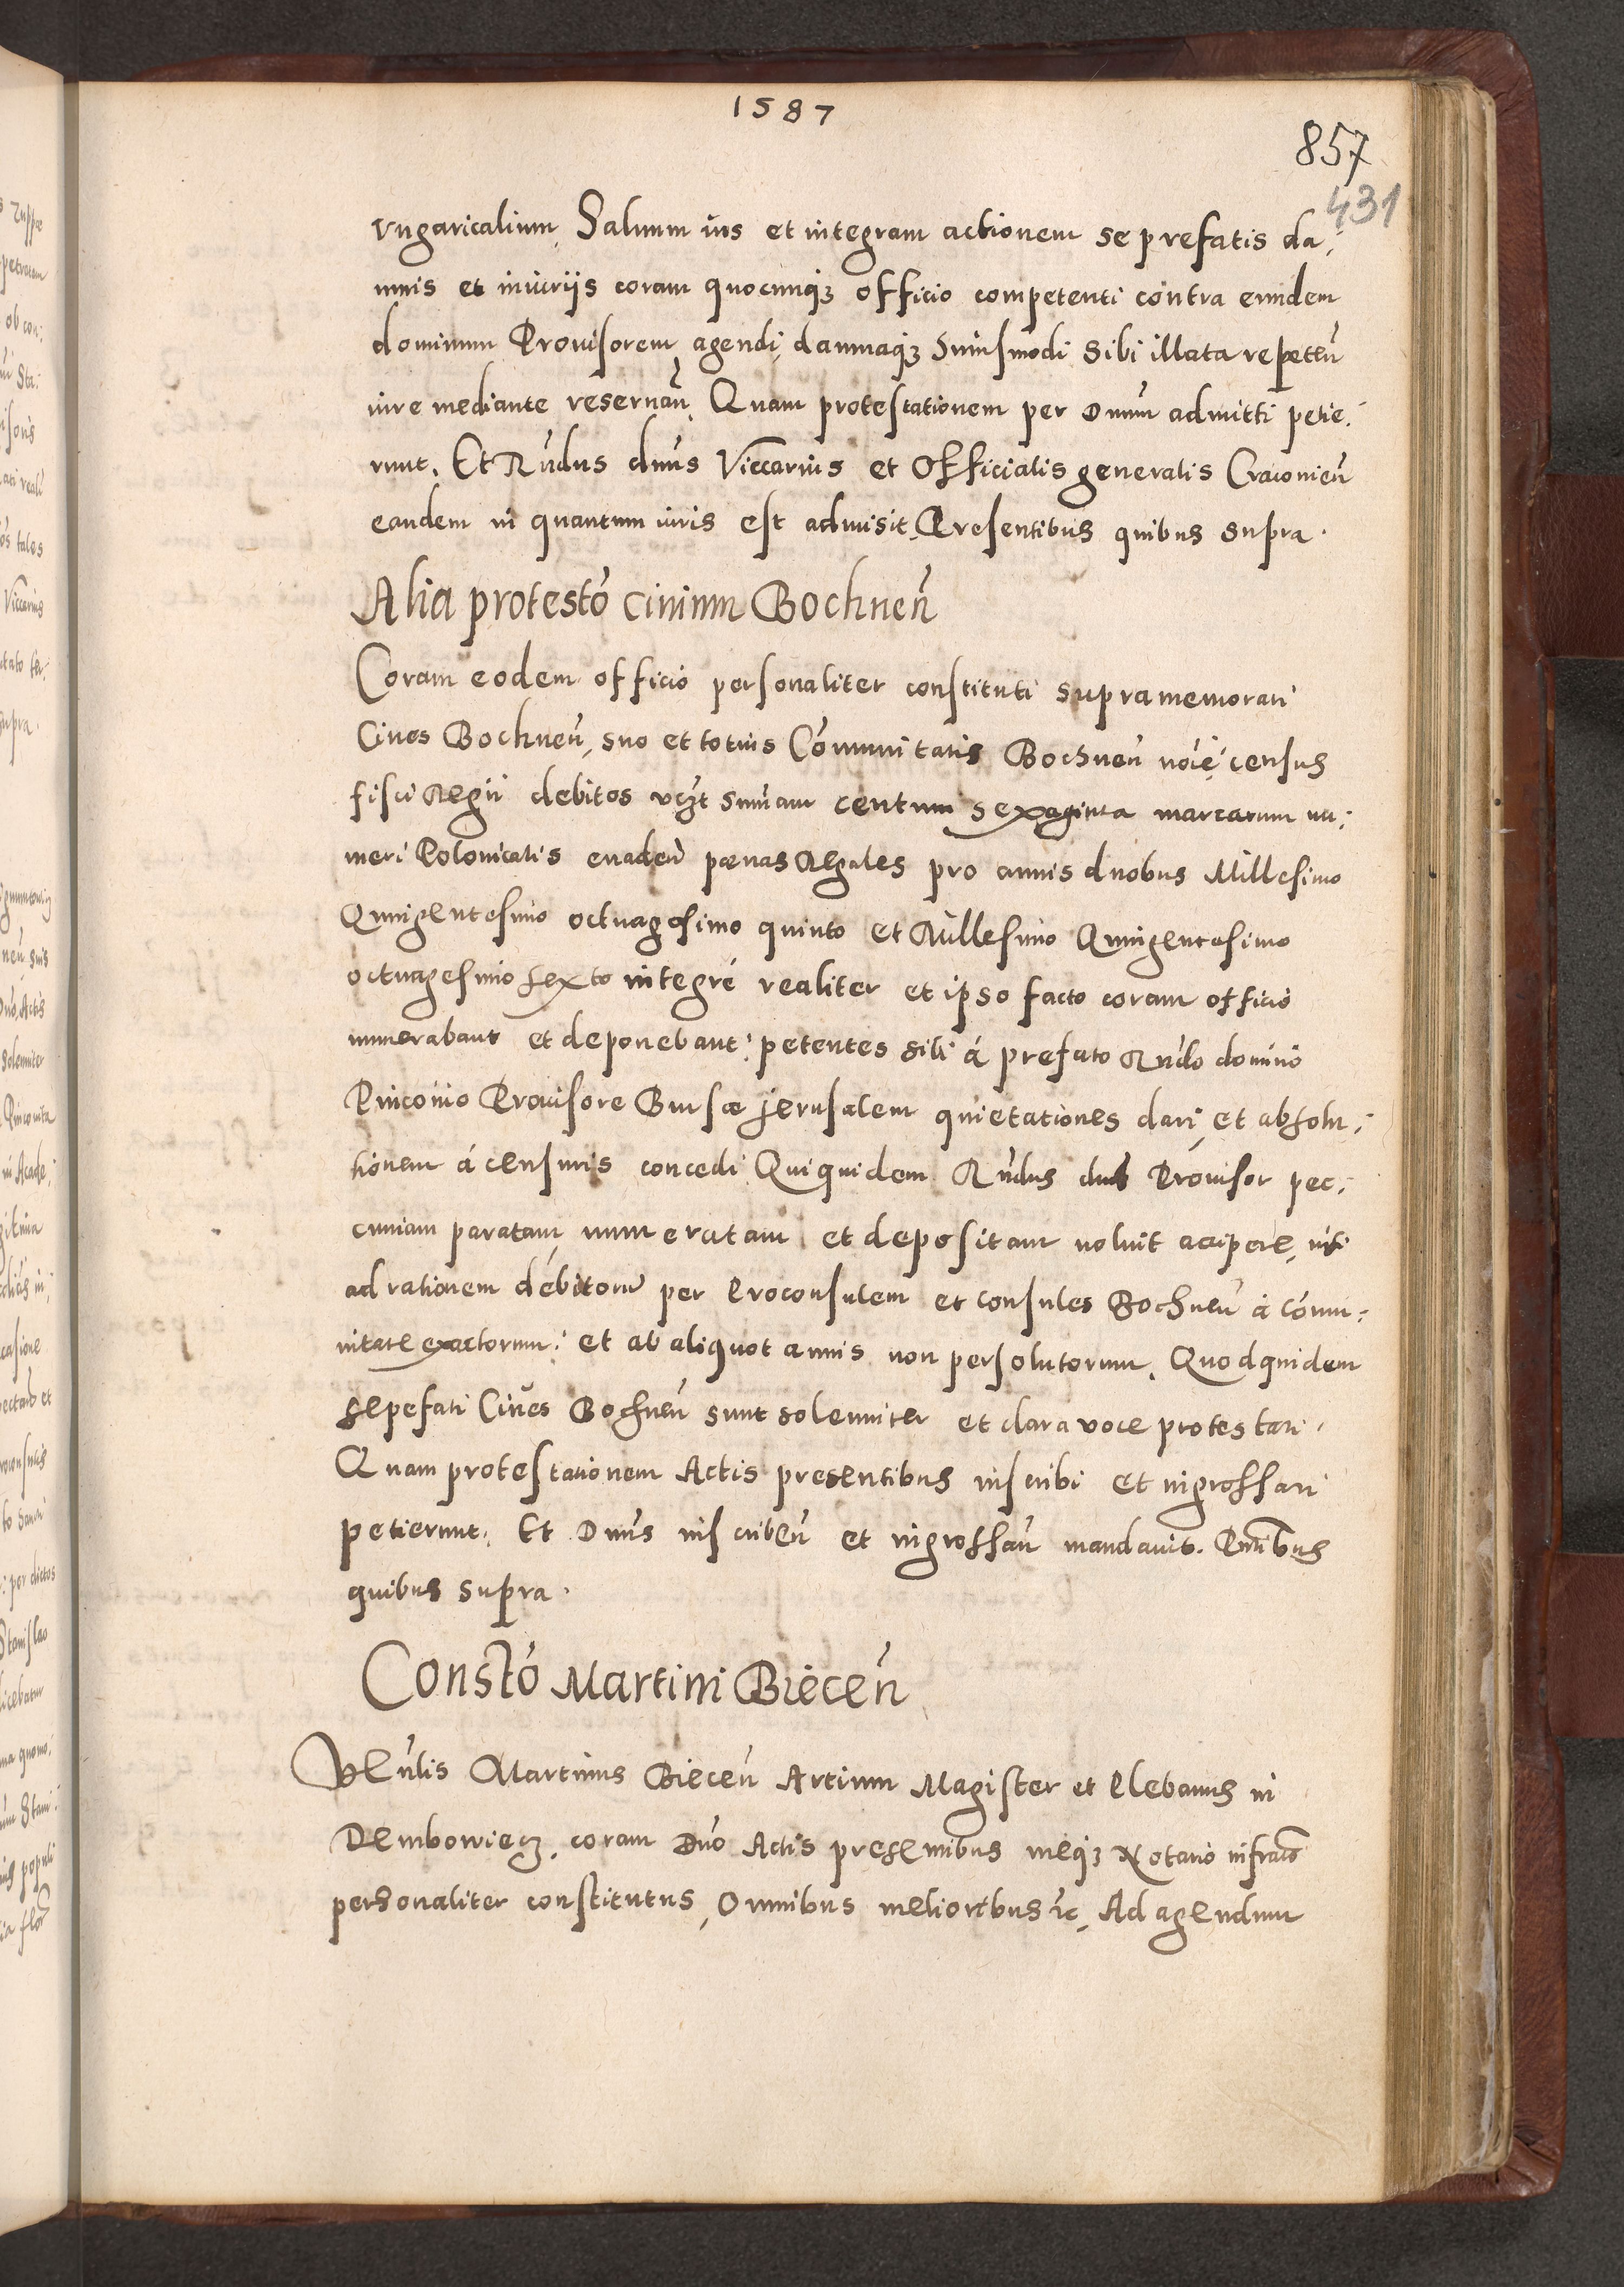 1587
857
431
vngaricalium, Saluum ius et integram actionem se prefatis da¸
mnis et iniurijs coram quocunq₃ officio competenti contra eundem
dominum Prouisorem agendi, damnaq₃ huiusmodi sibi illata repeteñ
iure mediante reseruañ. Quam protestationem per Dnum admitti petie¸
runt. Et Rñdus dnus Viccarius et Officialis generalis Cracouieñ
eandem in quantum iuris est admisit, Presentibus quibus supra.
Alia protesto ciuium Bochneñ
Coram eodem officio personaliter constituti supramemorati
Ciues Bochneñ, suo et totius Cõmunitatis Bochneñ noie, census
fisci Regii debitos vczt sum̃am centum sexaginta marcarum nu¸
meri Polonicalis euadeñ pœnas Regales pro annis duobus Millesimo
Quingentesimo octuagesimo quinto et Millesimo Quingentesimo
octuagesimo sexto integré realiter et ipso facto coram officio
numerabant et deponebant: petentes sibi á prefato Rñdo domino
Pinconio Prouisore Bursæ Jerusalem quietationes dari, et absolu¸
tionem á censuris concedi. Qui quidem Rñdus dnus Prouisor pec¸
cuniam paratam numeratam et depositam noluit accipere, nisi
ad rationem debitorũ per Proconsulem et consules Bochneñ á Cõmu¸
nitate exactorum: et ab aliquot annis non persolutorum. Quodquidem
sepefati Ciues Bochneñ sunt solenniter et clara voce protestati.
Quam protestationem Actis presentibus inscribi et ingrossari
petierunt. Et Dnus inscribeñ et ingrossañ mandauit. Pntibus
quibus supra.
Consto Martini Bieceñ
Veñlis Martinus Bieceñ Artium Magister et Plebanus in
Dembowiecz, coram Dño Actis presentibus meq₃ Notario infracto
personaliter constitutus, Omnibus melioribus &c, Ad agendum